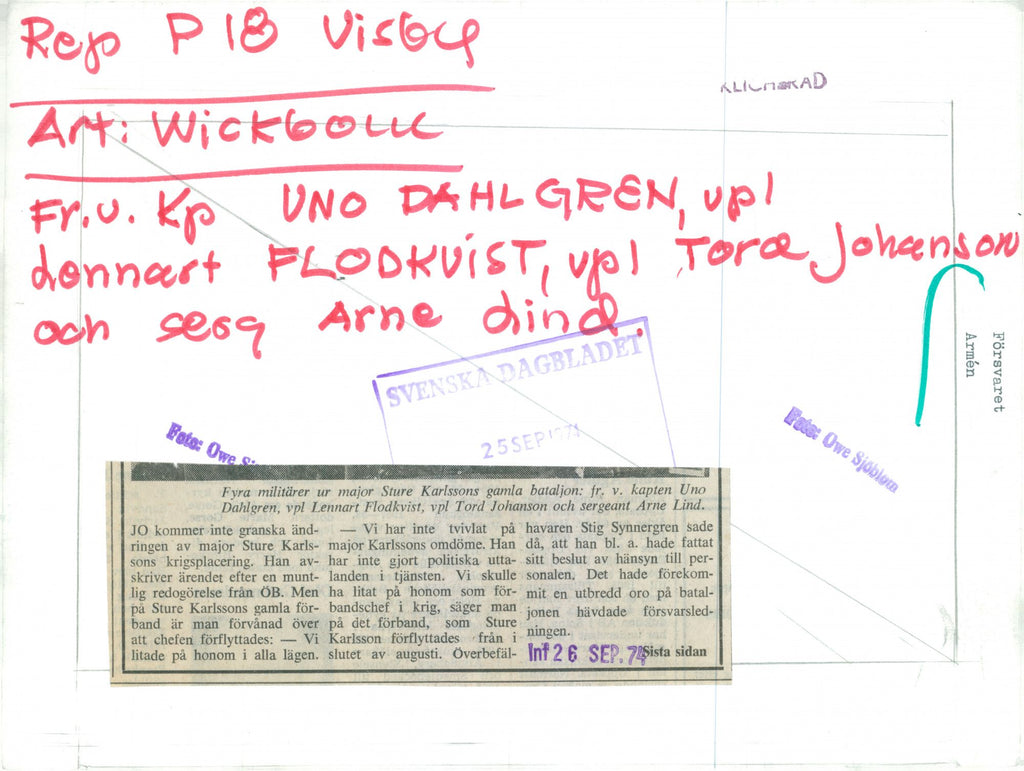 Rep P 18 Visby
KLICHERAD
Art: Wickbom
Fr.v. Kp UNO DAHLGREN, vpl
Lennart FLODKVIST, vpl Tord Johanson
och serg Arne Lind.
Försvaret
Armén
SVENSKA DAGBLADET
25 SEP 1974
Foto: Owe
Foto: Owe Sjöblom
Fyra militärer ur major Sture Karlssons gamla bataljon: fr. v. kapten Uno
Dahlgren, vpl Lennart Flodkvist, vpl Tord Johanson och sergeant Arne Lind.
JO kommer inte granska änd-
ringen av major Sture Karls-
sons krigsplacering. Han av-
skriver ärendet efter en munt-
lig redogörelse från ÖB. Men
på Sture Karlssons gamla för-
band är man förvånad över
att chefen förflyttades: — Vi
litade på honom i alla lägen.
— Vi har inte tvivlat på
major Karlssons omdöme. Han
har inte gjort politiska utta-
landen i tjänsten. Vi skulle
ha litat på honom som för-
bandschef i krig, säger man
på det förband, som Sture
Karlsson förflyttades från i
slutet av augusti. Överbefäl-
havaren Stig Synnergren sade
då, att han bl. a. hade fattat
sitt beslut av hänsyn till per-
sonalen. Det hade förekom-
mit en utbredd oro på batal-
jonen hävdade försvarsled-
ningen.
Inf 26 SEP. 74 Sista sidan